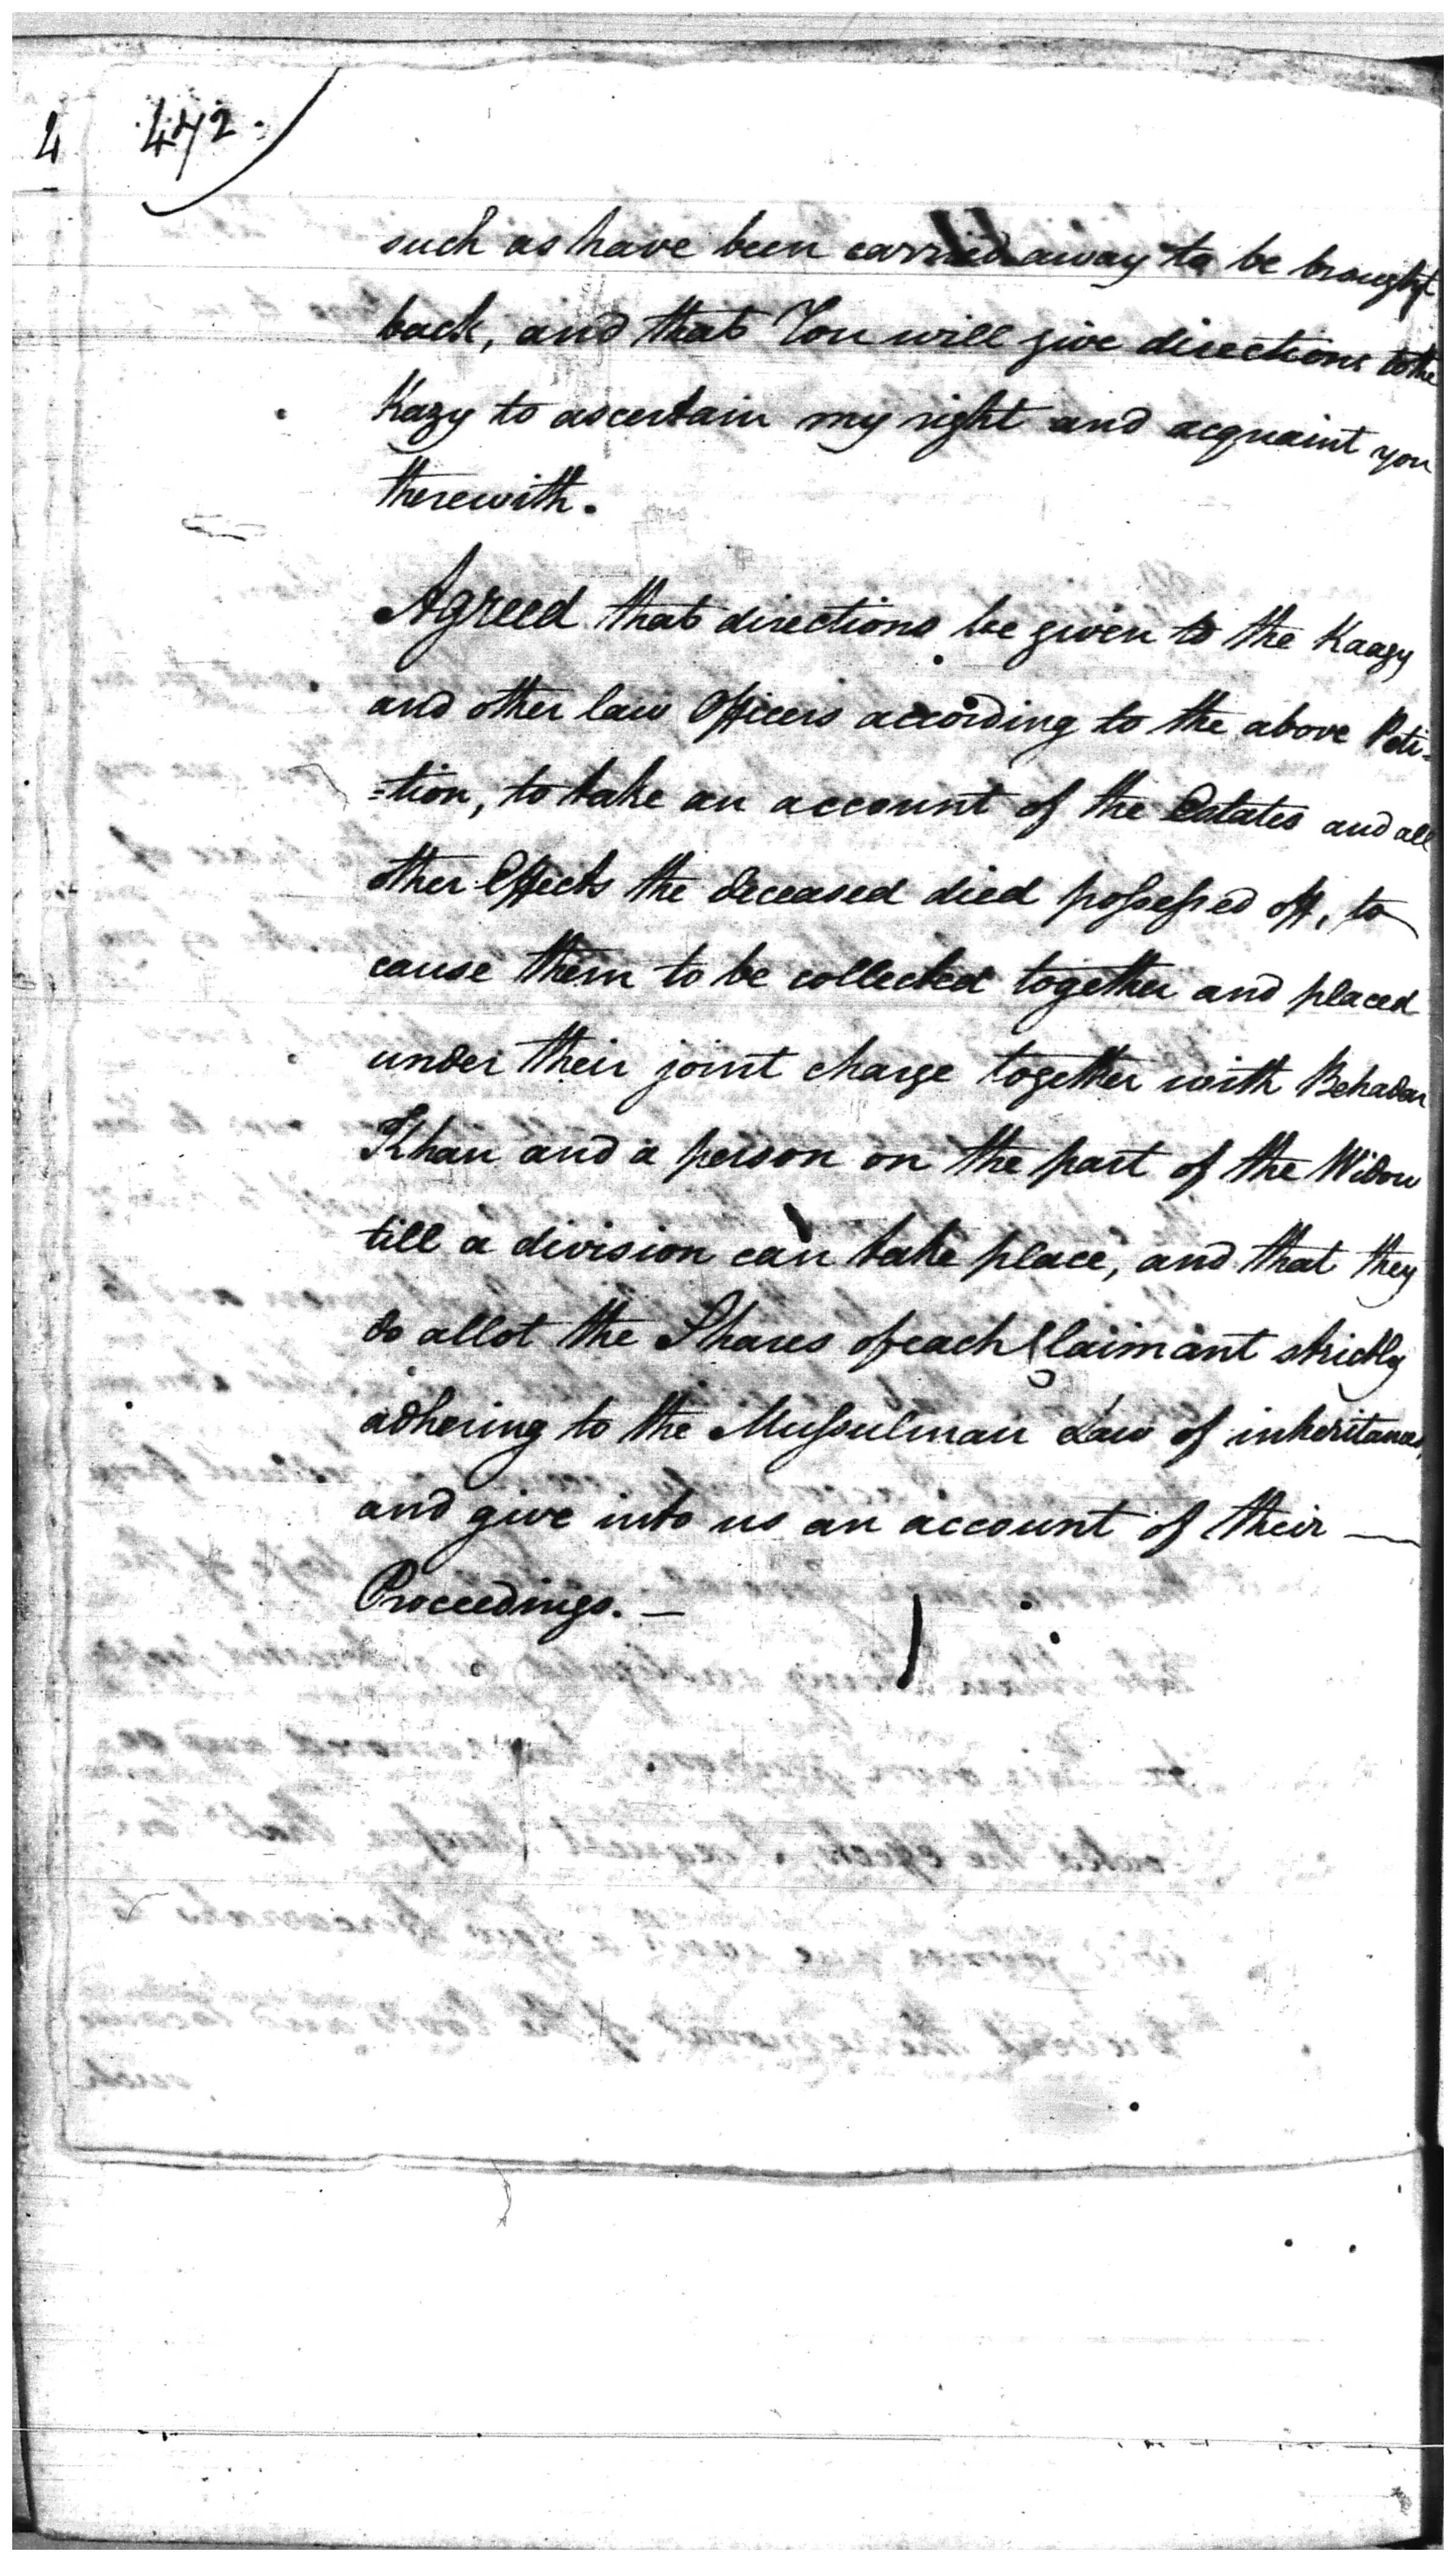 4
472.
such as have been carried away to be brought
back, and that You will give directions to the
Kazy to ascertain my right and acquaint you
therewith.
Agreed that directions be given to the Kaazy
and other law Officers according to the above Peti-
=tion, to take an account of the Estates and all
other Effects the deceased died possessed off, to
cause them to be collected together and placed
under their joint charge together with Behadar
Khan and a person on the part of the Widow
till a division can take place, and that they
do allot the Shares of each Claimant strictly
adhering to the Mussulman Law of inheritance,
and give into us an account of their —
Proceedings. —